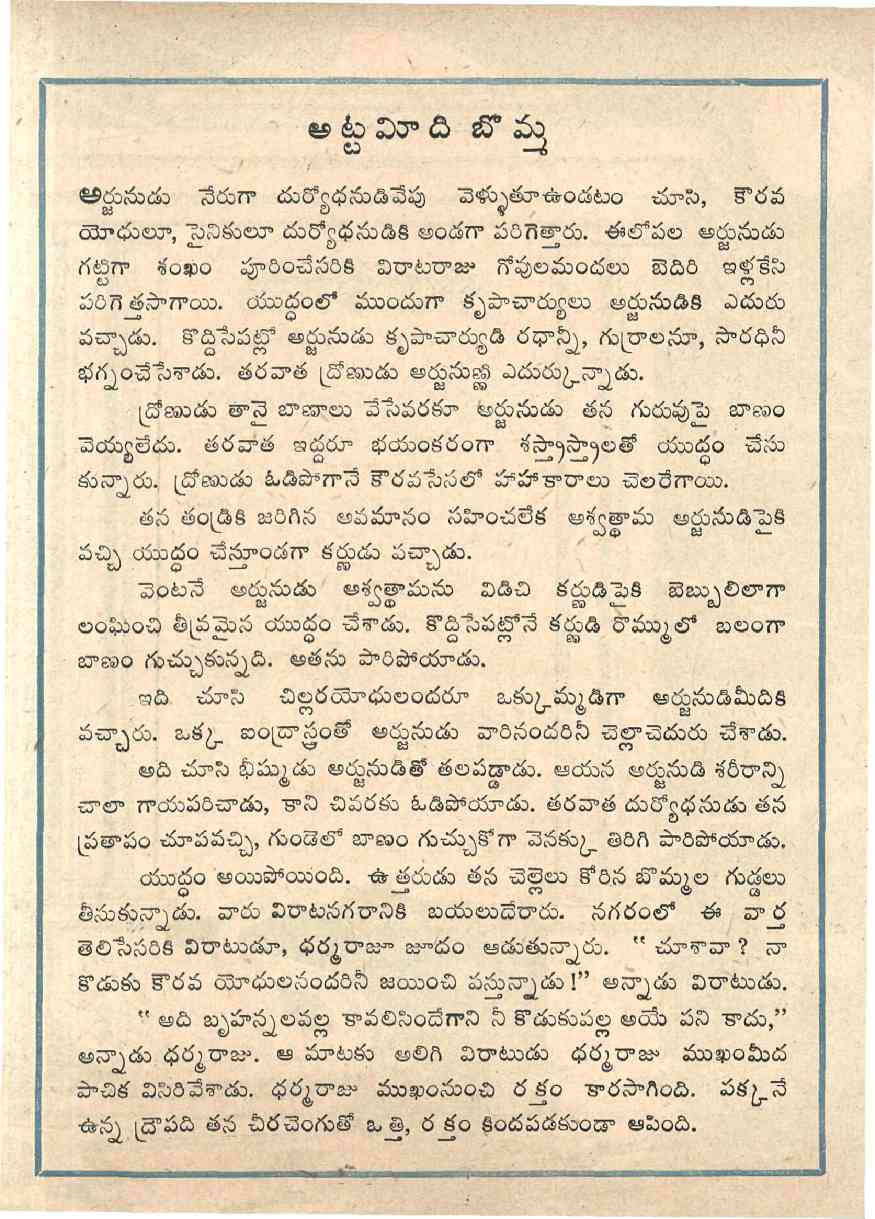 అట్టమీది బొమ్మ
అర్జునుడు నేరుగా దుర్యోధనుడివేపు వెళ్ళుతూఉండటం చూసి, కౌరవ
యోధులూ, సైనికులూ దుర్యోధనుడికి అండగా పరిగెత్తారు. ఈలోపల అర్జునుడు
గట్టిగా శంఖం పూరించేసరికి విరాటరాజు గోవులమందలు బెదిరి ఇళ్లకేసి
పరిగెత్తసాగాయి. యుద్ధంలో ముందుగా కృపాచార్యులు అర్జునుడికి ఎదురు
వచ్చాడు. కొద్దిసేపట్లో అర్జునుడు కృపాచార్యుడి రధాన్నీ, గుర్రాలనూ, సారధినీ
భగ్నంచేసేశాడు. తరవాత ద్రోణుడు అర్జునుణ్ణి ఎదుర్కున్నాడు.
ద్రోణుడు తానై బాణాలు వేసేవరకూ అర్జునుడు తన గురువుపై బాణం
వెయ్యలేదు. తరవాత ఇద్దరూ భయంకరంగా శస్త్రాస్త్రాలతో యుద్ధం చేసు
కున్నారు. ద్రోణుడు ఓడిపోగానే కౌరవసేనలో హాహాకారాలు చెలరేగాయి.
తన తండ్రికి జరిగిన అవమానం సహించలేక అశ్వత్థామ అర్జునుడిపైకి
వచ్చి యుద్ధం చేస్తూండగా కర్ణుడు వచ్చాడు.
వెంటనే అర్జునుడు అశ్వత్థామను విడిచి కర్ణుడిపైకి బెబ్బులిలాగా
లంఘించి తీవ్రమైన యుద్ధం చేశాడు. కొద్దిసేపట్లోనే కర్ణుడి రొమ్ములో బలంగా
బాణం గుచ్చుకున్నది. అతను పారిపోయాడు.
ఇది చూసి చిల్లరయోధులందరూ ఒక్కుమ్మడిగా అర్జునుడిమీదికి
వచ్చారు. ఒక్క ఐంద్రాస్త్రంతో అర్జునుడు వారినందరినీ చెల్లాచెదురు చేశాడు.
అది చూసి భీష్ముడు అర్జునుడితో తలపడ్డాడు. ఆయన అర్జునుడి శరీరాన్ని
చాలా గాయపరిచాడు, కాని చివరకు ఓడిపోయాడు. తరవాత దుర్యోధనుడు తన
ప్రతాపం చూపవచ్చి, గుండెలో బాణం గుచ్చుకోగా వెనక్కు తిరిగి పారిపోయాడు.
యుద్ధం అయిపోయింది. ఉత్తరుడు తన చెల్లెలు కోరిన బొమ్మల గుడ్డలు
తీసుకున్నాడు. వారు విరాటనగరానికి బయలుదేరారు. నగరంలో ఈ వార్త
తెలిసేసరికి విరాటుడూ, ధర్మరాజూ జూదం ఆడుతున్నారు. “చూశావా? నా
కొడుకు కౌరవ యోధులనందరినీ జయించి వస్తున్నాడు!” అన్నాడు విరాటుడు.
“అది బృహన్నలవల్ల కావలిసిందేగాని నీ కొడుకువల్ల అయే పని కాదు,”
అన్నాడు ధర్మరాజు. ఆ మాటకు అలిగి విరాటుడు ధర్మరాజు ముఖంమీద
పాచిక విసిరివేశాడు. ధర్మరాజు ముఖంనుంచి రక్తం కారసాగింది. పక్కనే
ఉన్న ద్రౌపది తన చీరచెంగుతో ఒత్తి, రక్తం కిందపడకుండా ఆపింది.